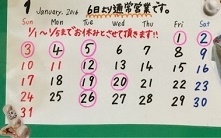 1 January. 2016 6日より通常営業です。
1/1~1/5までお休みとさせて頂きます!!
1 2
3 4 5 6 7 8 9
10 11 12 13 14 15 16
17 18 19 20 21 22 23
24 25 26 27 28 29 30
31